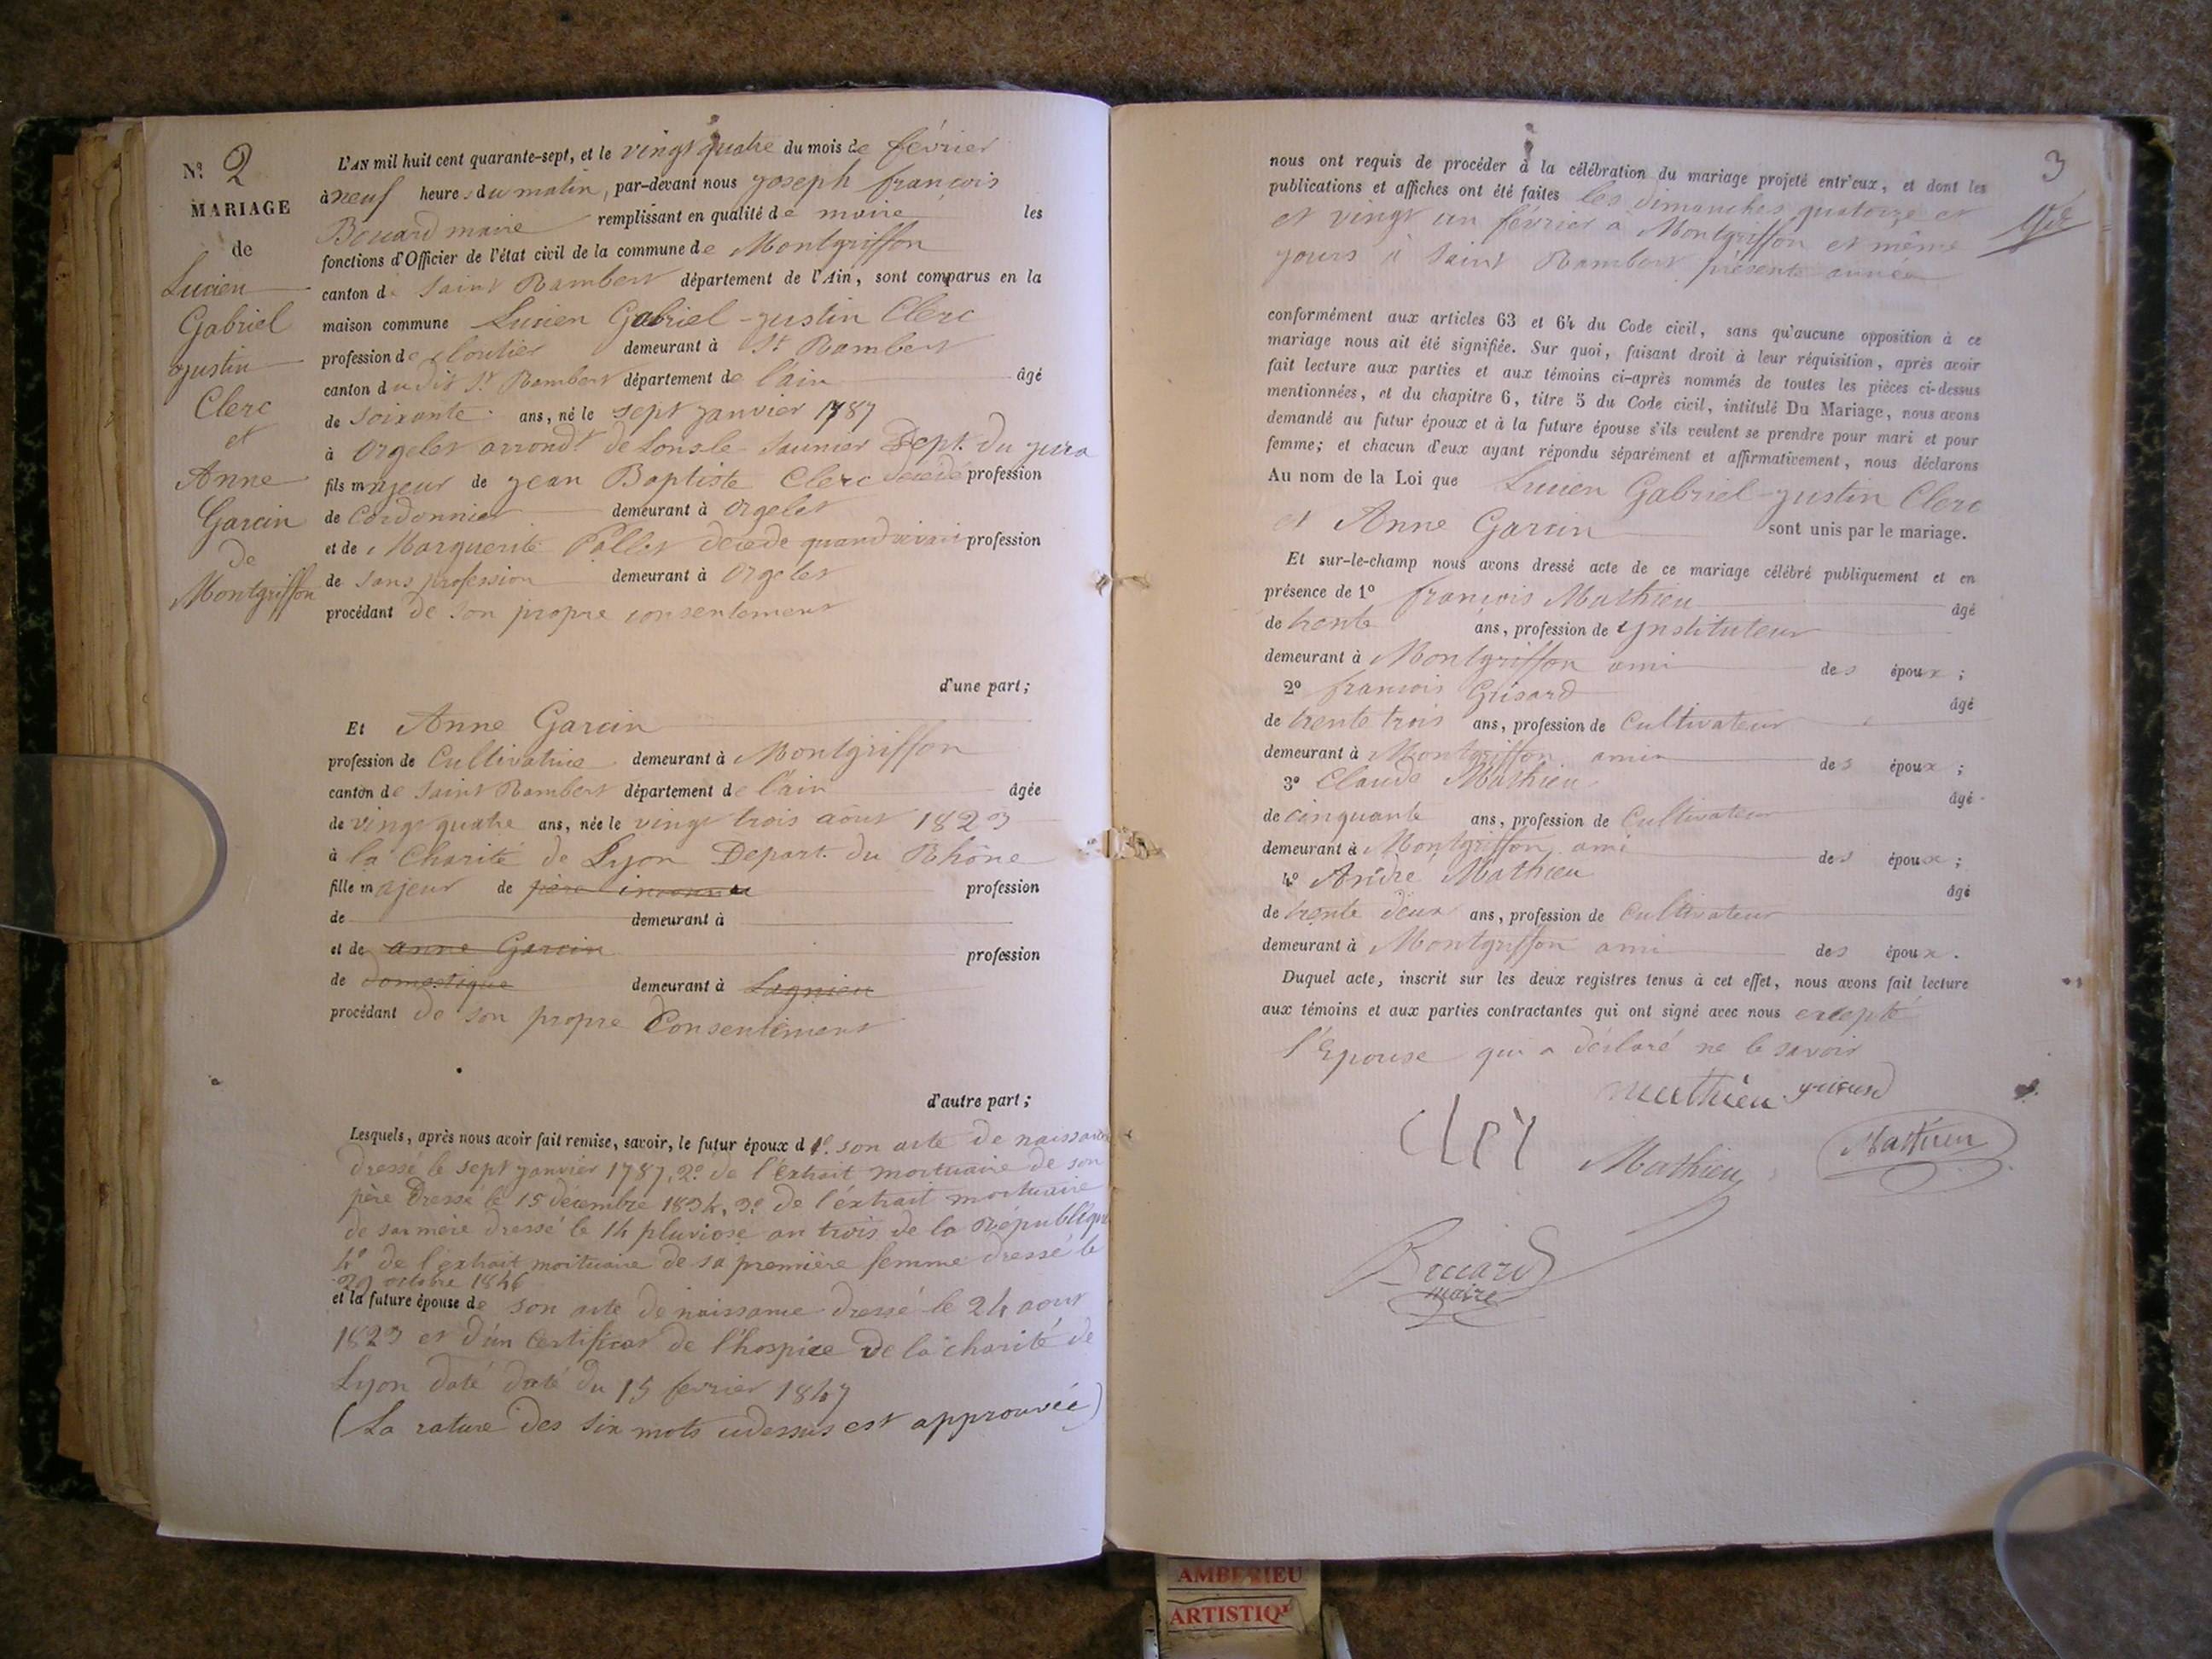 N.º 2
MARIAGE
de
Lucien
Gabriel
justin
Clerc
et
Anne
Garcin
de
Montgriffon
L'AN mil huit cent quarante-sept, et le vingt quatre du mois de février
à neuf heures du matin, par-devant nous joseph francois
Bouard maire remplissant en qualité de maire les
fonctions d'Officier de l'état civil de la commune de Montgriffon
canton de Saint Rambert département de l'Ain, sont comparus en la
maison commune Lucien Gabriel justin Clerc
profession de cloutier demeurant à St Rambert
canton dudit St Rambert département de l'ain âgé
de soixante ans, né le sept janvier 1787
à Orgelet arrondt de Lons le Saunier Dept. du jura
fils majeur de jean Baptiste Clerc décédé profession
de Cordonnier demeurant à Orgelet
et de Marguerite Pallet décédé quand vivait profession
de sans profession demeurant à Orgelet
procédant de son propre consentement
d'une part;
Et Anne Garcin
profession de Cultivatrice demeurant à Montgriffon
canton de Saint Rambert département de l'ain âgée
de vingt quatre ans, née le vingt trois aout 1823
à la Charité de Lyon Depart. du Rhône
fille majeur de père inconnu profession
de demeurant à
et de anne Garcin profession
de domestique demeurant à Lagnieu
procédant de son propre Consentement
d'autre part;
Lesquels, après nous avoir fait remise, savoir, le futur époux d 1º son acte de naissance
dressé le sept janvier 1787, 2º de l'extrait mortuaire de son
père dressé le 15 décembre 1834, 3º de l'éxtrait mortuaire
de sa mère dressé le 14 pluviose an trois de la République
4º de l'éxtrait mortuaire de sa première femme dressé le
29 octobre 1846
et la future épouse de son acte de naissance dressé le 24 aout
1823 et d'un Certificat de l'hospice de la charité de
Lyon daté daté du 15 fevrier 1847
(La rature des six mots cidessus est approuvée)
3
nous ont requis de procéder à la célébration du mariage projeté entr'eux, et dont les
publications et affiches ont été faites les dimanches quatorze et
et vingt un février à Montgriffon et même
jours à Saint Rambert présente année
conformément aux articles 63 et 64 du Code civil, sans qu'aucune opposition à ce
mariage nous ait été signifiée. Sur quoi, faisant droit à leur réquisition, après avoir
fait lecture aux parties et aux témoins ci-après nommés de toutes les pièces ci-dessus
mentionnées, et du chapitre 6, titre 5 du Code civil, intitulé Du Mariage, nous avons
demandé au futur époux et à la future épouse s'ils veulent se prendre pour mari et pour
femme; et chacun d'eux ayant répondu séparément et affirmativement, nous déclarons
Au nom de la Loi que Lucien Gabriel justin Clerc
et Anne Garcin sont unis par le mariage.
Et sur-le-champ nous avons dressé acte de ce mariage célébré publiquement et en
présence de 1º francois Mathieu âgé
de trente ans, profession de ynstituteur
demeurant à Montgriffon ami des époux;
2º francois Grisard âgé
de trente trois ans, profession de Cultivateur
demeurant à Montgriffon ami des époux;
3º Claude Mathieu âgé
de cinquante ans, profession de Cultivateur
demeurant à Montgriffon ami des époux;
4º André Mathieu âgé
de trente deux ans, profession de Cultivateur
demeurant à Montgriffon ami des époux.
Duquel acte, inscrit sur les deux registres tenus à cet effet, nous avons fait lecture
aux témoins et aux parties contractantes qui ont signé avec nous excepté
l'Epouse qui a déclaré ne le savoir
Mathieu grisard
Mathieu Mathieu
Bouard
maire
AMBERIEU
ARTISTIQ